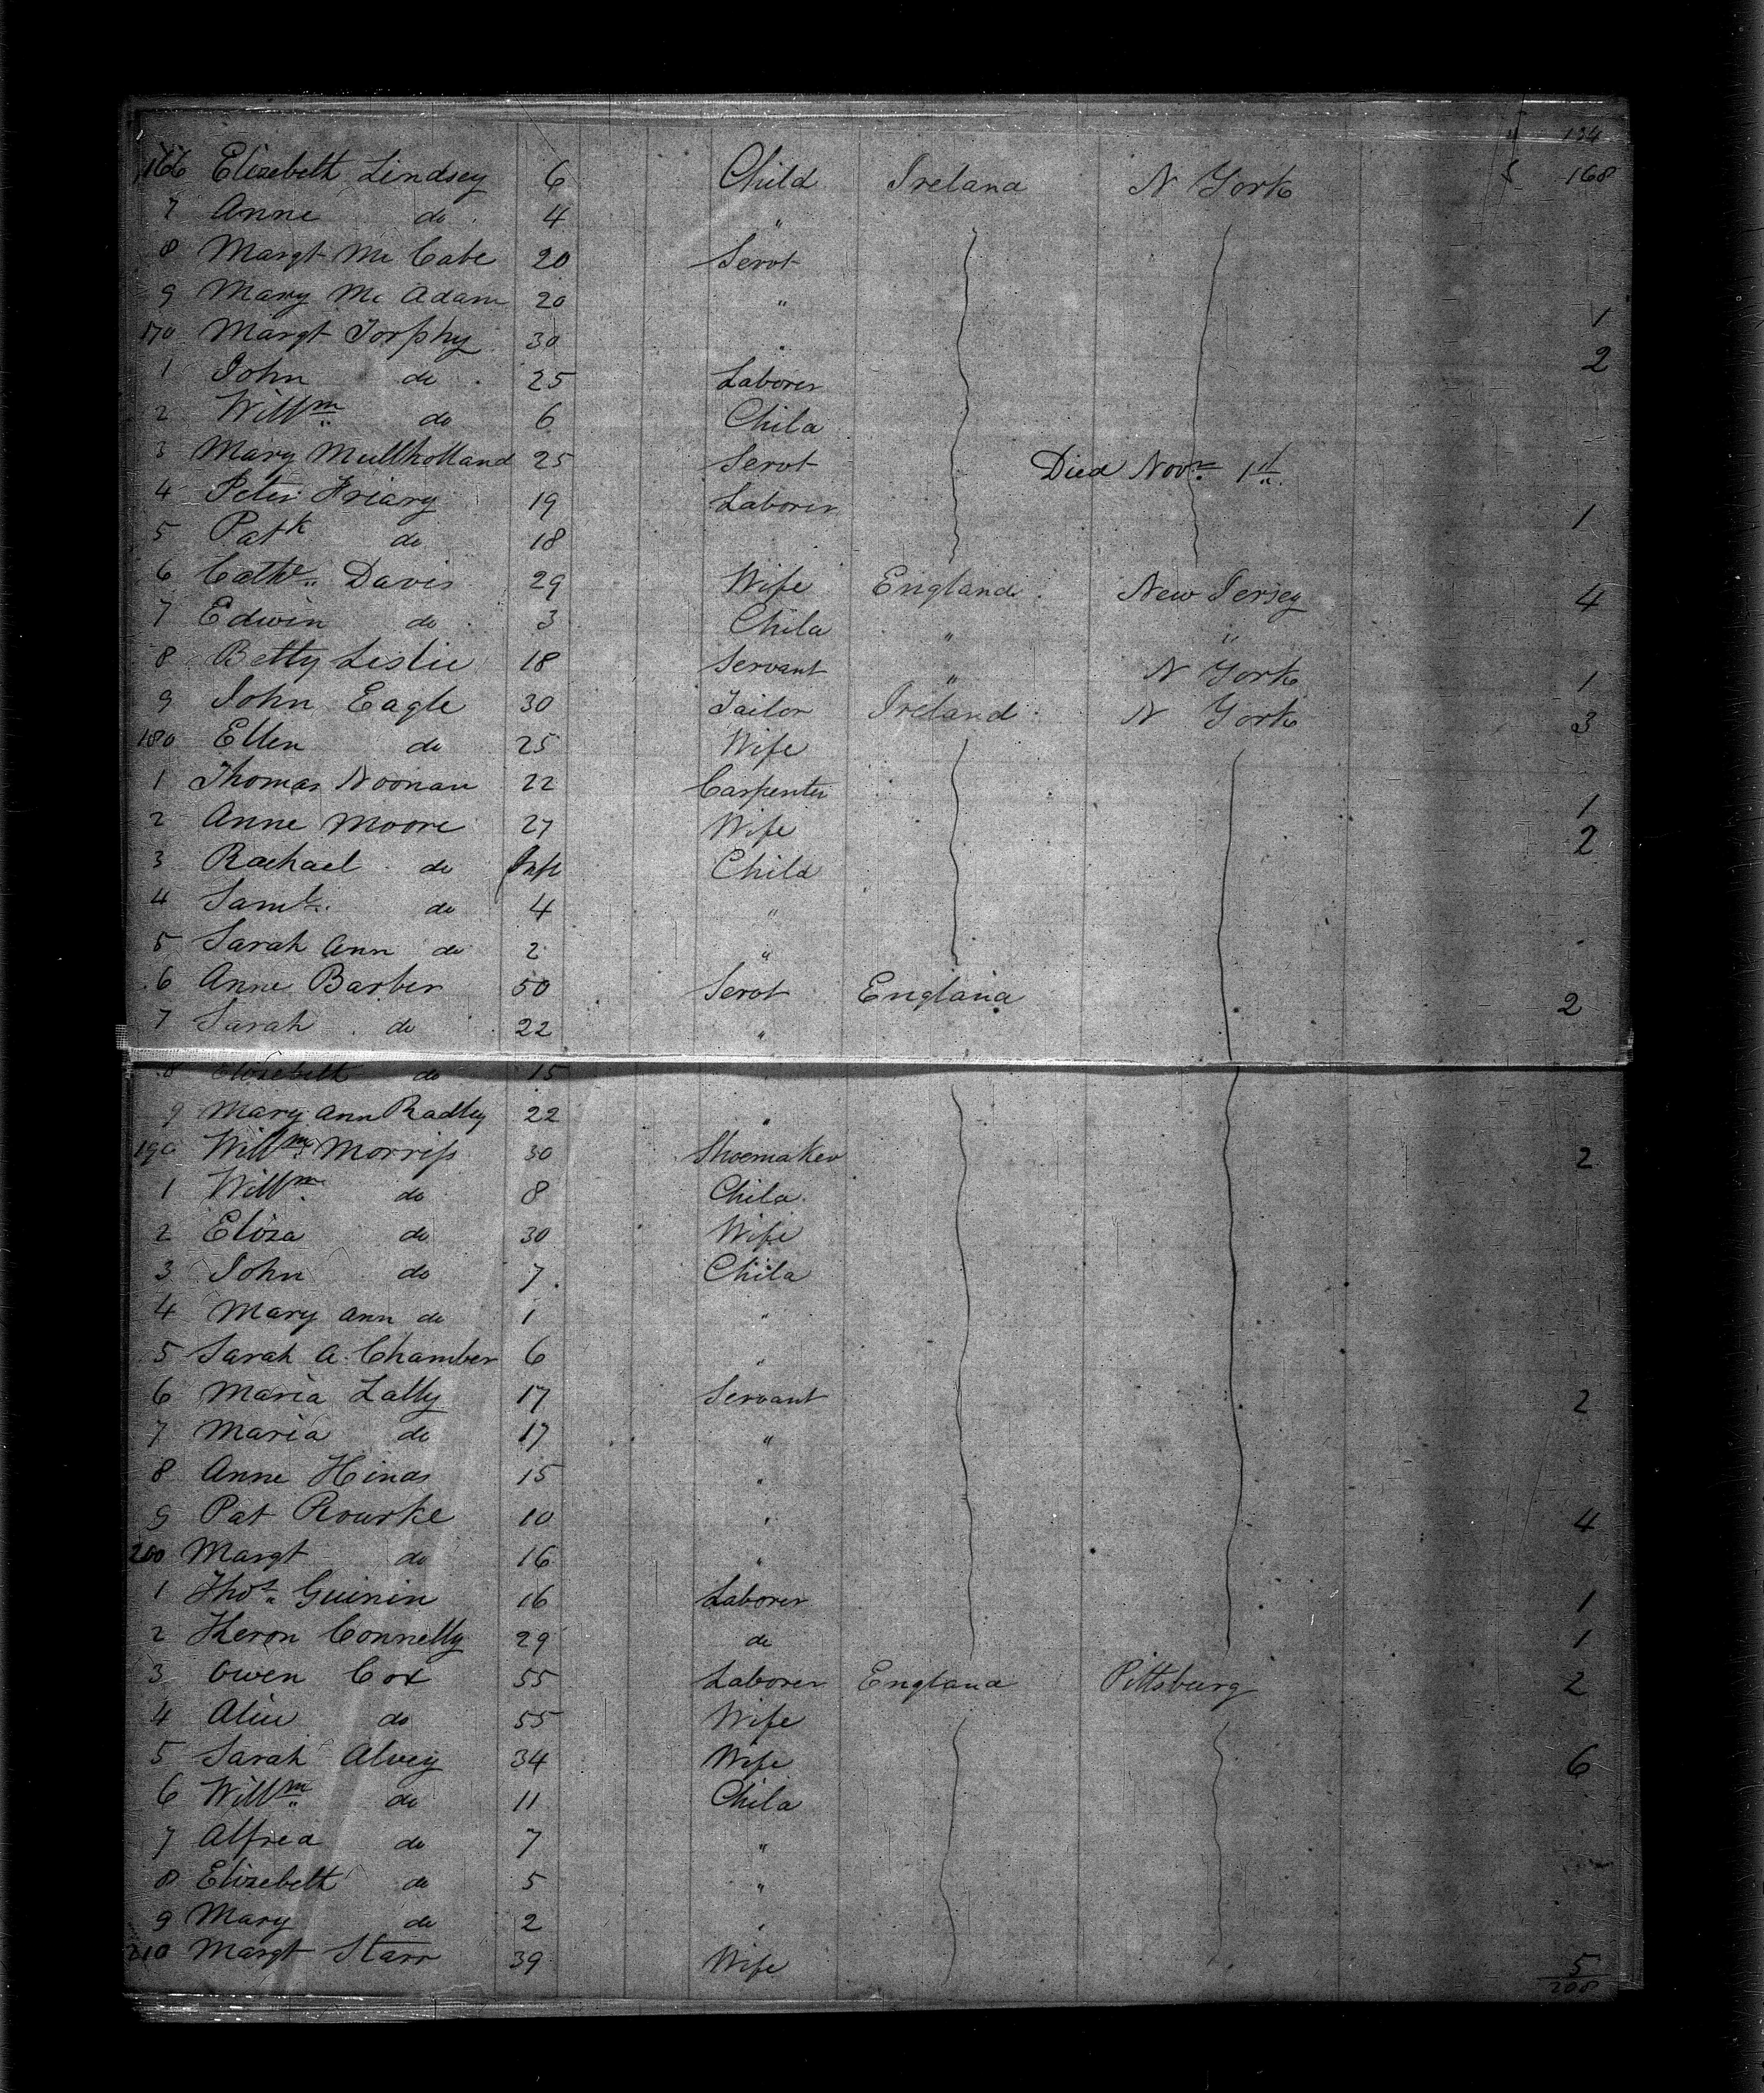 11 134
166 Elizebeth Lindsey 6 Child Ireland N York 5 168
7 Anne do 4 "
8 Margt Mc Cabe 20 Servt
9 Mary Mc Adam 20 " 1
170 Margt Torphy 30 " 2
1 John do 25 Laborer
2 Willm do 6 Child
3 Mary Mullholland 25 Servt Died Novr 1st
4 Peter Friary 19 Laborer 1
5 Patk do 18
6 Cathe Davis 29 Wife England New Jersey 4
7 Edwin do 3 Child " "
8 Betty Leslie 18 Servant " N York 1
9 John Eagle 30 Tailor Ireland N York 3
180 Ellen do 25 Wife
1 Thomas Noonan 22 Carpenter 1
2 Anne Moore 27 Wife 2
3 Rachael do Inft Child
4 Saml do 4 "
5 Sarah Ann do 2 "
6 Anne Barber 50 Servt England 2
7 Sarah do 22 "
8 Elizebeth do 15
9 Mary Ann Radley 22 "
190 Willm Morriss 30 Shoemaker 2
1 Willm do 8 Child
2 Eliza do 30 Wife
3 John do 7 Child
4 Mary Ann do 1 "
5 Sarah A. Chamber 6 "
6 Maria Lally 17 Servant 2
7 Maria do 17 "
8 Anne Hinds 15 "
9 Pat Rourke 10 " 4
200 Margt do 16 "
1 Thos Guinin 16 Laborer 1
2 Keron Connelly 29 do 1
3 Owen Cox 55 Laborer England Pittsburg 2
4 Alice do 55 Wife
5 Sarah Alvey 34 Wife 6
6 Willm do 11 Child
7 Alfred do 7 "
8 Elizebeth do 5 "
9 Mary do 2 "
210 Margt Starr 39 Wife 5
208